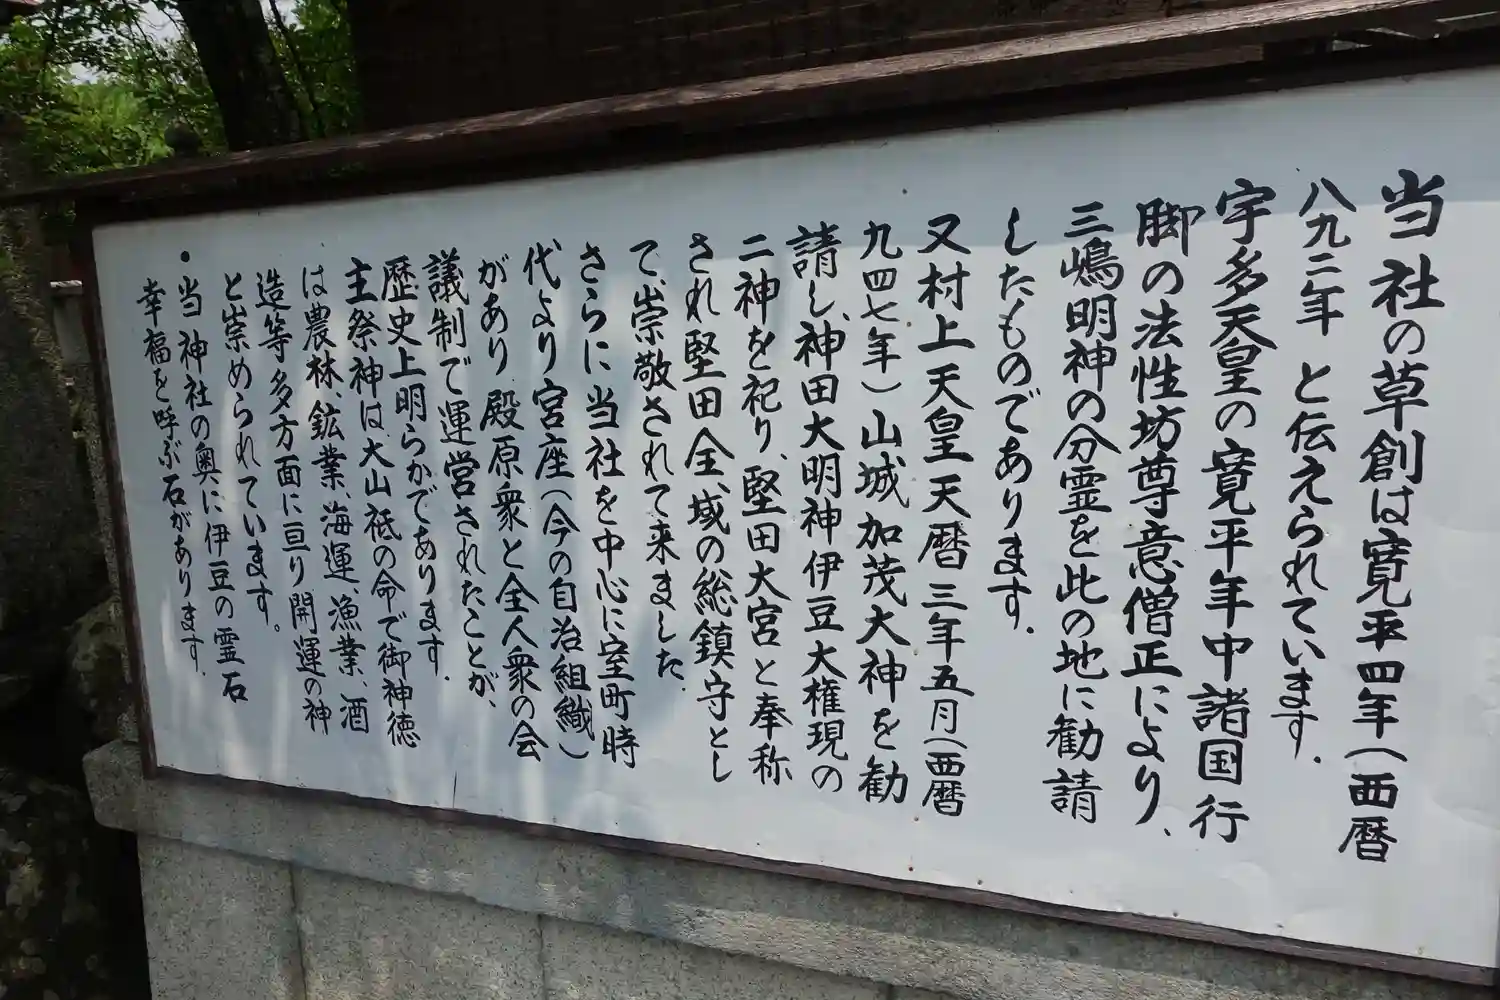 当社の草創は寛平四年(西暦
八九二年)と伝えられています.
宇多天皇の寛平年中諸国行
脚の法性坊尊意僧正により、
三嶋明神の分霊を此の地に勧請
したものであります.
又村上天皇天暦三年五月(西暦
九四七年)山城加茂大神を勧
請し、神田大明神伊豆大権現の
二神を祀り、堅田大宮と奉称
され堅田全域の総鎮守とし
て、崇敬されて来ました.
さらに当社を中心に室町時
代より宮座(今の自治組織)
があり殿原衆と全人衆の会
議制で運営されたことが、
歴史上明らかであります.
主祭神は大山祇の命で御神徳
は農林、鉱業、海運、漁業、酒
造等多方面に亘り開運の神
と崇められています。
・当神社の奥に伊豆の霊石
幸福を呼ぶ石があります.